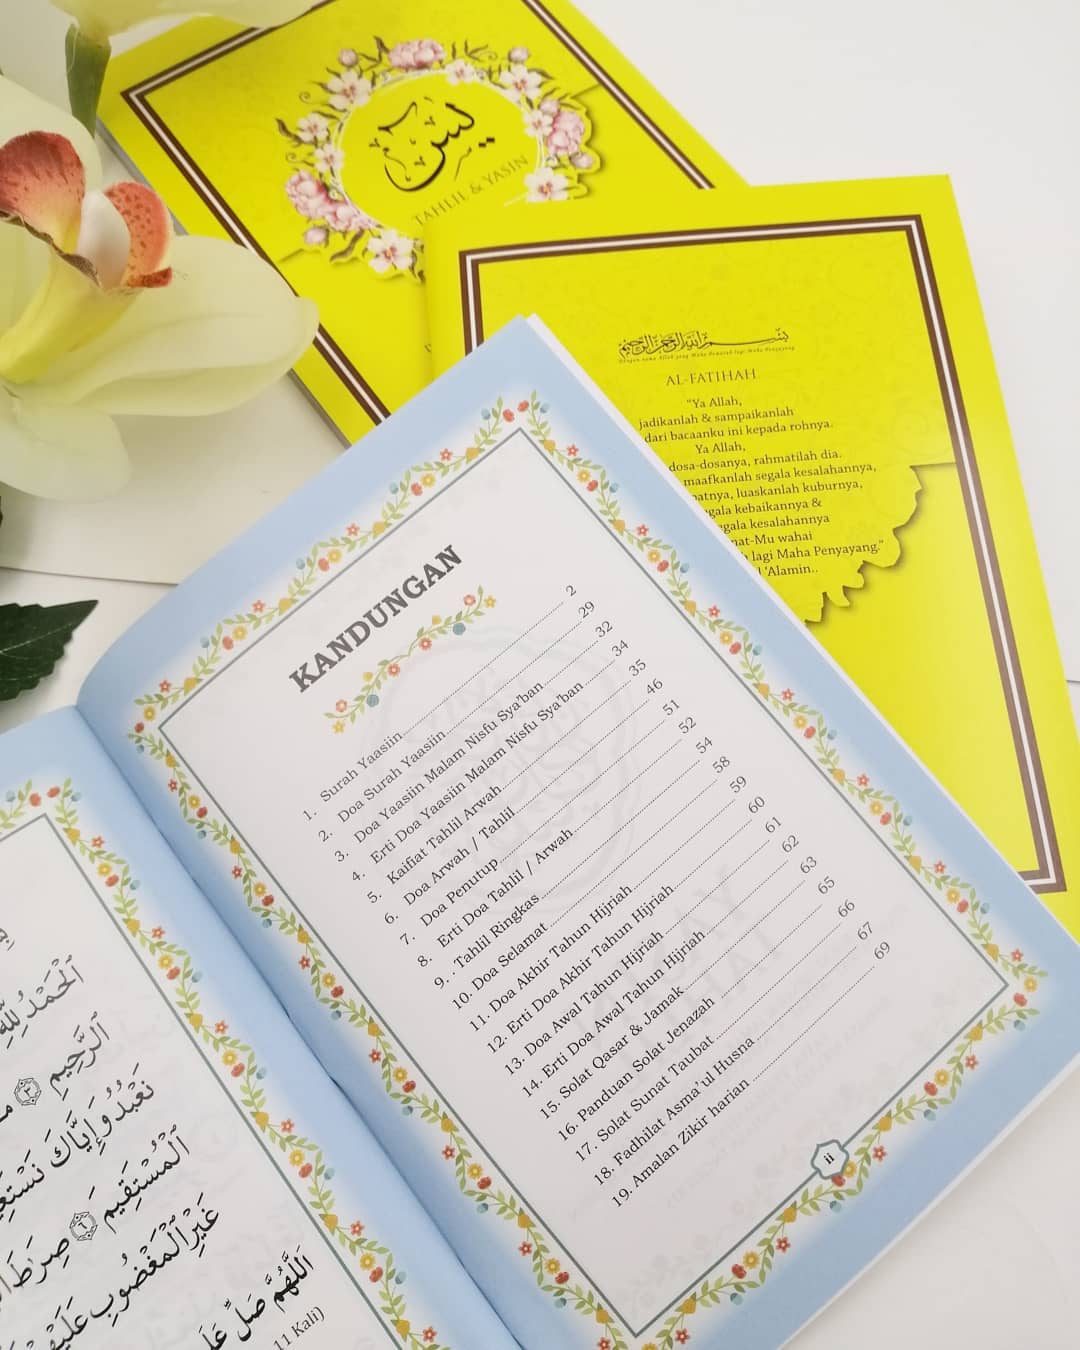 يس
TAHLIL & YASIN
بسم الله الرحمن الرحيم
Dengan nama Allah yang Maha Pemurah lagi Maha Penyayang
AL-FATIHAH
"Ya Allah,
jadikanlah & sampaikanlah
dari bacaanku ini kepada rohnya.
Ya Allah,
dosa-dosanya, rahmatilah dia.
maafkanlah segala kesalahannya,
luaskanlah kuburnya,
kebaikannya &
kesalahannya
wahai
lagi Maha Penyayang."
'Alamin..
KANDUNGAN
1. Surah Yaasiin 2
2. Doa Surah Yaasiin 29
3. Doa Yaasiin Malam Nisfu Sya'ban 32
4. Erti Doa Yaasiin Malam Nisfu Sya'ban 34
5. Kaifiat Tahlil Arwah 35
6. Doa Arwah / Tahlil 46
7. Doa Penutup 51
8. Erti Doa Tahlil / Arwah 52
9. . Tahlil Ringkas 54
10. Doa Selamat 58
11. Doa Akhir Tahun Hijriah 59
12. Erti Doa Akhir Tahun Hijriah 60
13. Doa Awal Tahun Hijriah 61
14. Erti Doa Awal Tahun Hijriah 62
15. Solat Qasar & Jamak 63
16. Panduan Solat Jenazah 65
17. Solat Sunat Taubat 66
18. Fadhilat Asma'ul Husna 67
19. Amalan Zikir harian 69
ii
ٱلْحَمْدُ لِلَّهِ
ٱلرَّحِيمِ ٣
نَعْبُدُ وَإِيَّاكَ
ٱلْمُسْتَقِيمَ ٦ صِرَٰطَ
غَيْرِ ٱلْمَغْضُوبِ
اَللّٰهُمَّ صَلِّ
11 Kali)